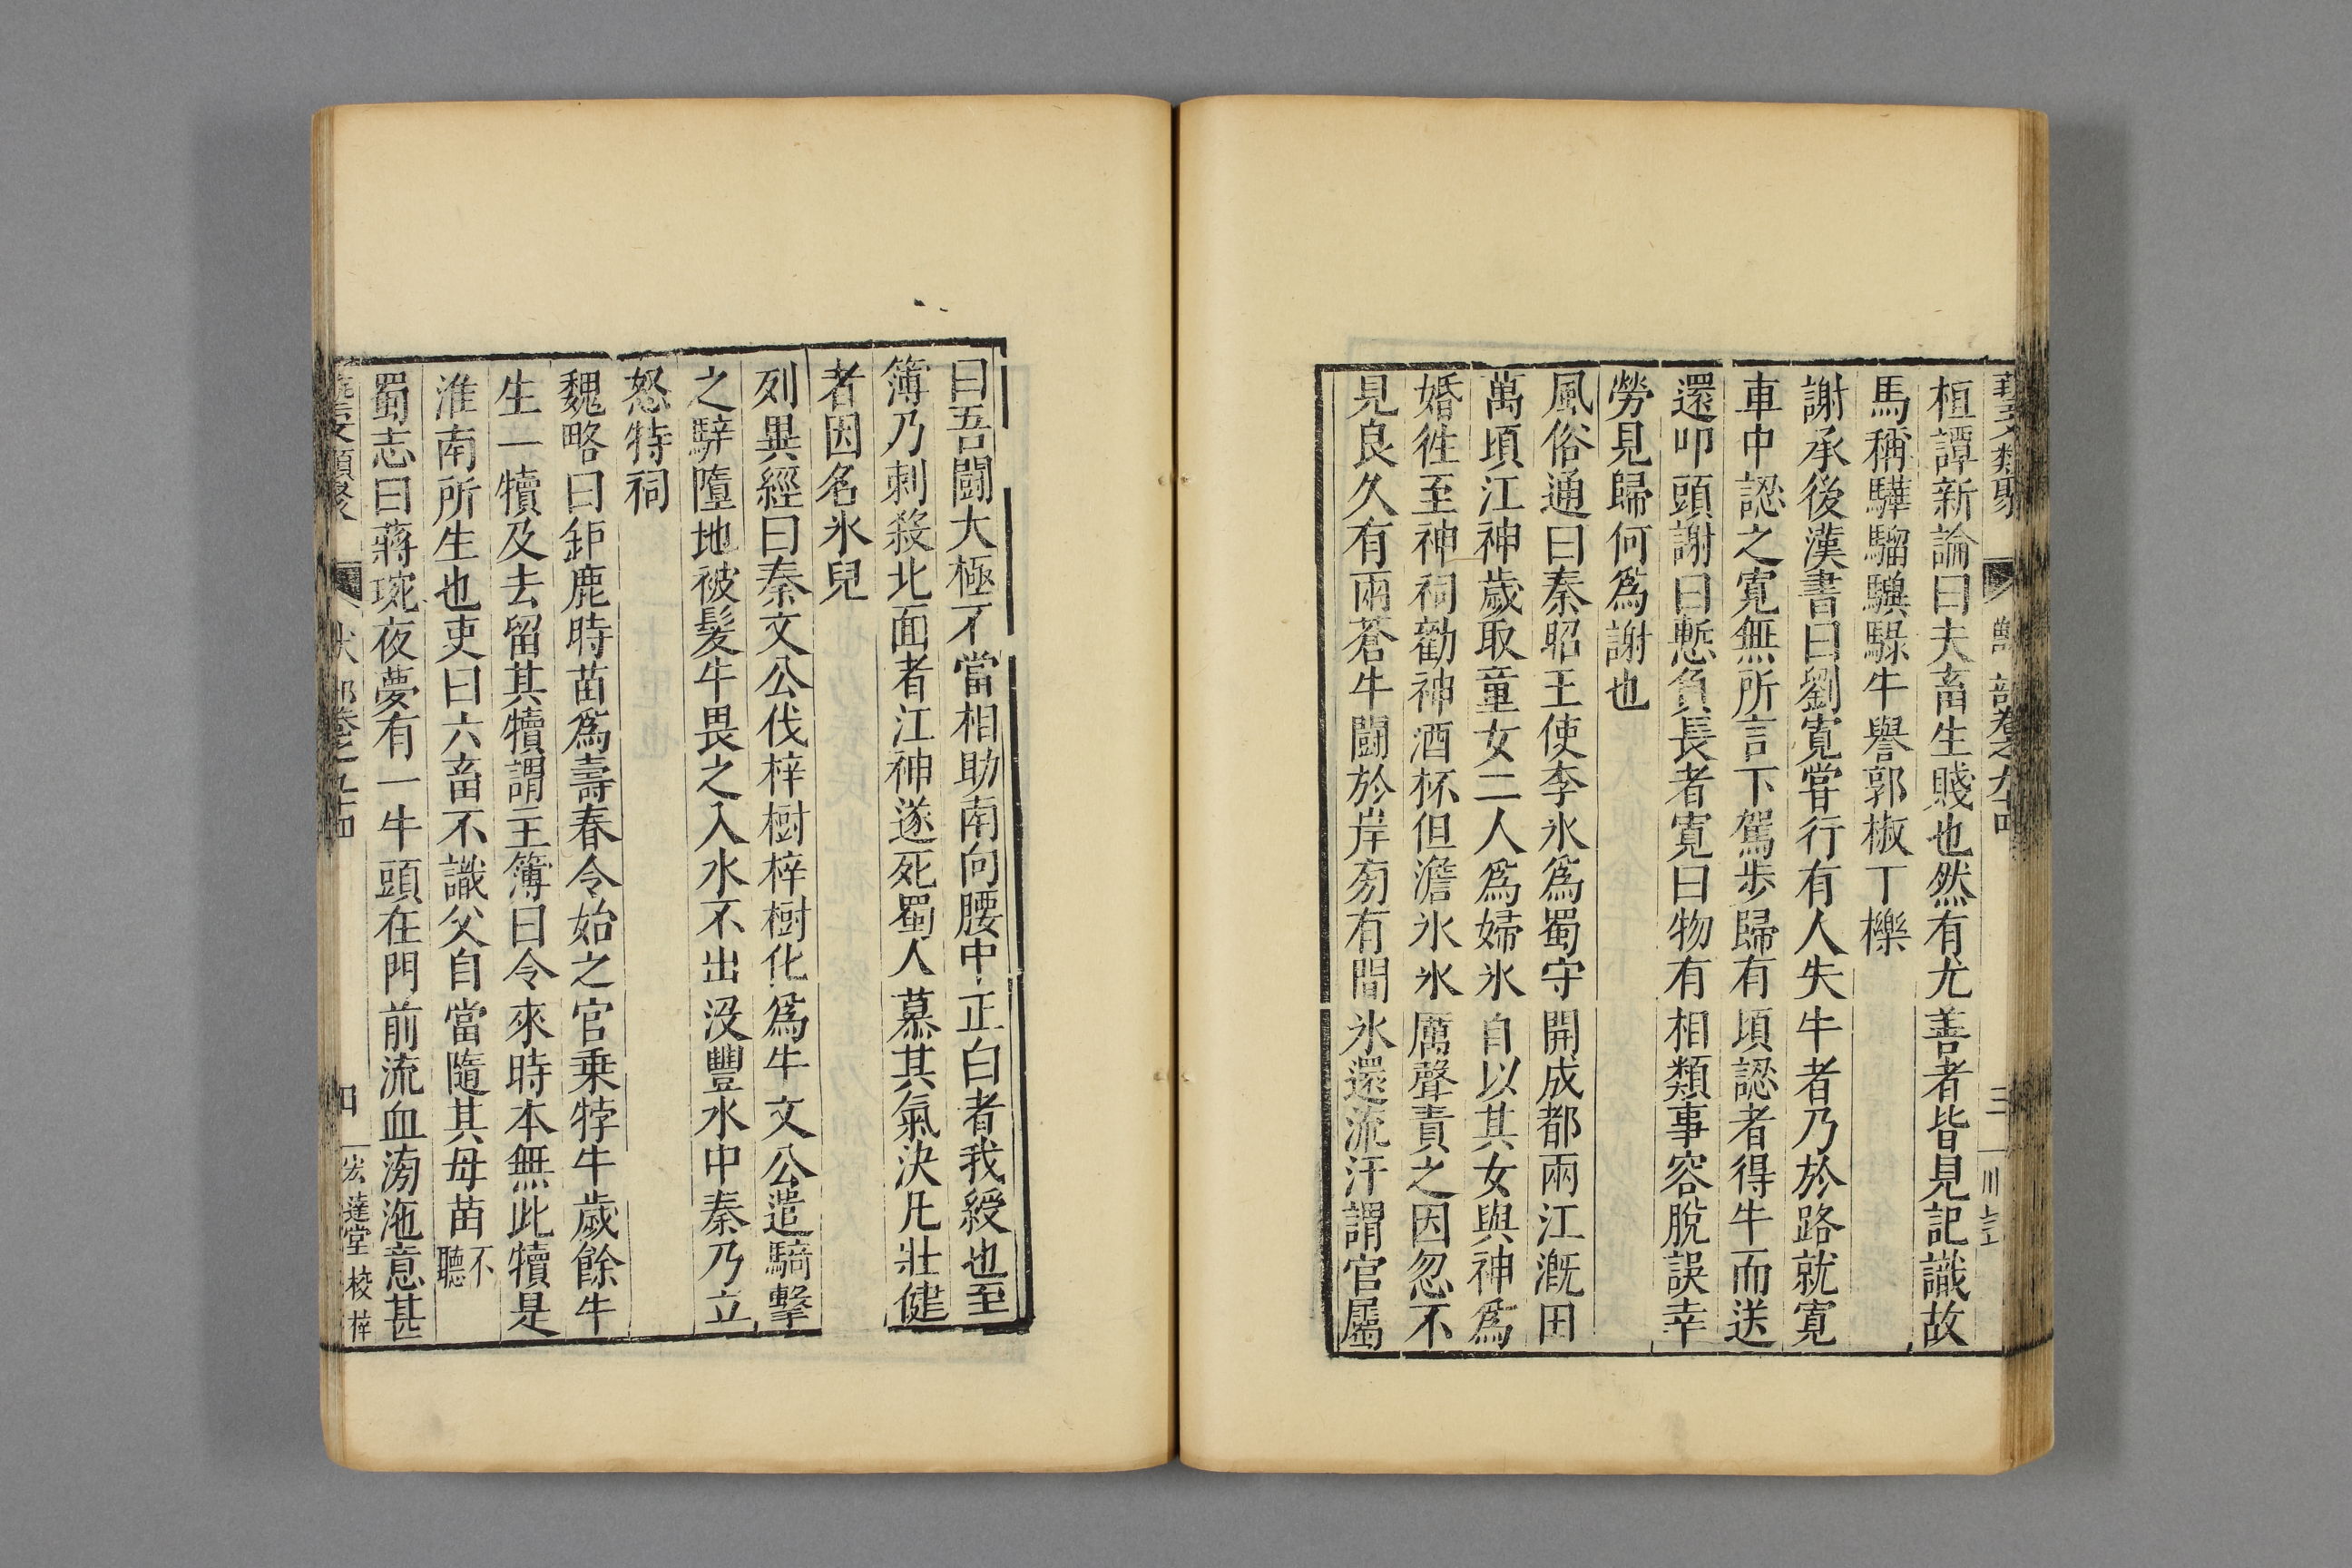 藝文類聚
獸部卷之九十四
三
桓譚新論曰夫畜生賤也然有尤善者皆見記識故
馬稱驊騮驥騄牛譽郭椒丁櫟
謝承後漢書曰劉寬嘗行有人失牛者乃於路就寬
車中認之寬無所言下駕步歸有頃認者得牛而送
還叩頭謝曰慙負長者寬曰物有相類事容脫誤幸
勞見歸何爲謝也
風俗通曰秦昭王使李氷爲蜀守開成都兩江溉田
萬頃江神歲取童女二人爲婦氷自以其女與神爲
婚徃至神祠勸神酒杯但澹氷氷厲聲責之因忽不
見良久有兩蒼牛鬬於岸旁有間氷還流汗謂官屬
曰吾鬬大極不當相助南向腰中正白者我綬也至
簿乃刺殺北面者江神遂死蜀人慕其氣決凡壯健
者因名氷兒
列異經曰秦文公伐梓樹梓樹化爲牛文公遣騎擊
之騂墮地被髮牛畏之入水不出没豐水中秦乃立
怒特祠
魏略曰鉅鹿時苗爲壽春令始之官乗牸牛歲餘牛
生一犢及去留其犢謂主簿曰令來時本無此犢是
淮南所生也吏曰六畜不識父自當隨其母苗不聽
蜀志曰蔣琬夜夢有一牛頭在門前流血滂沲意甚
藝文類聚
獸部卷之九十四
四
宏達堂校梓